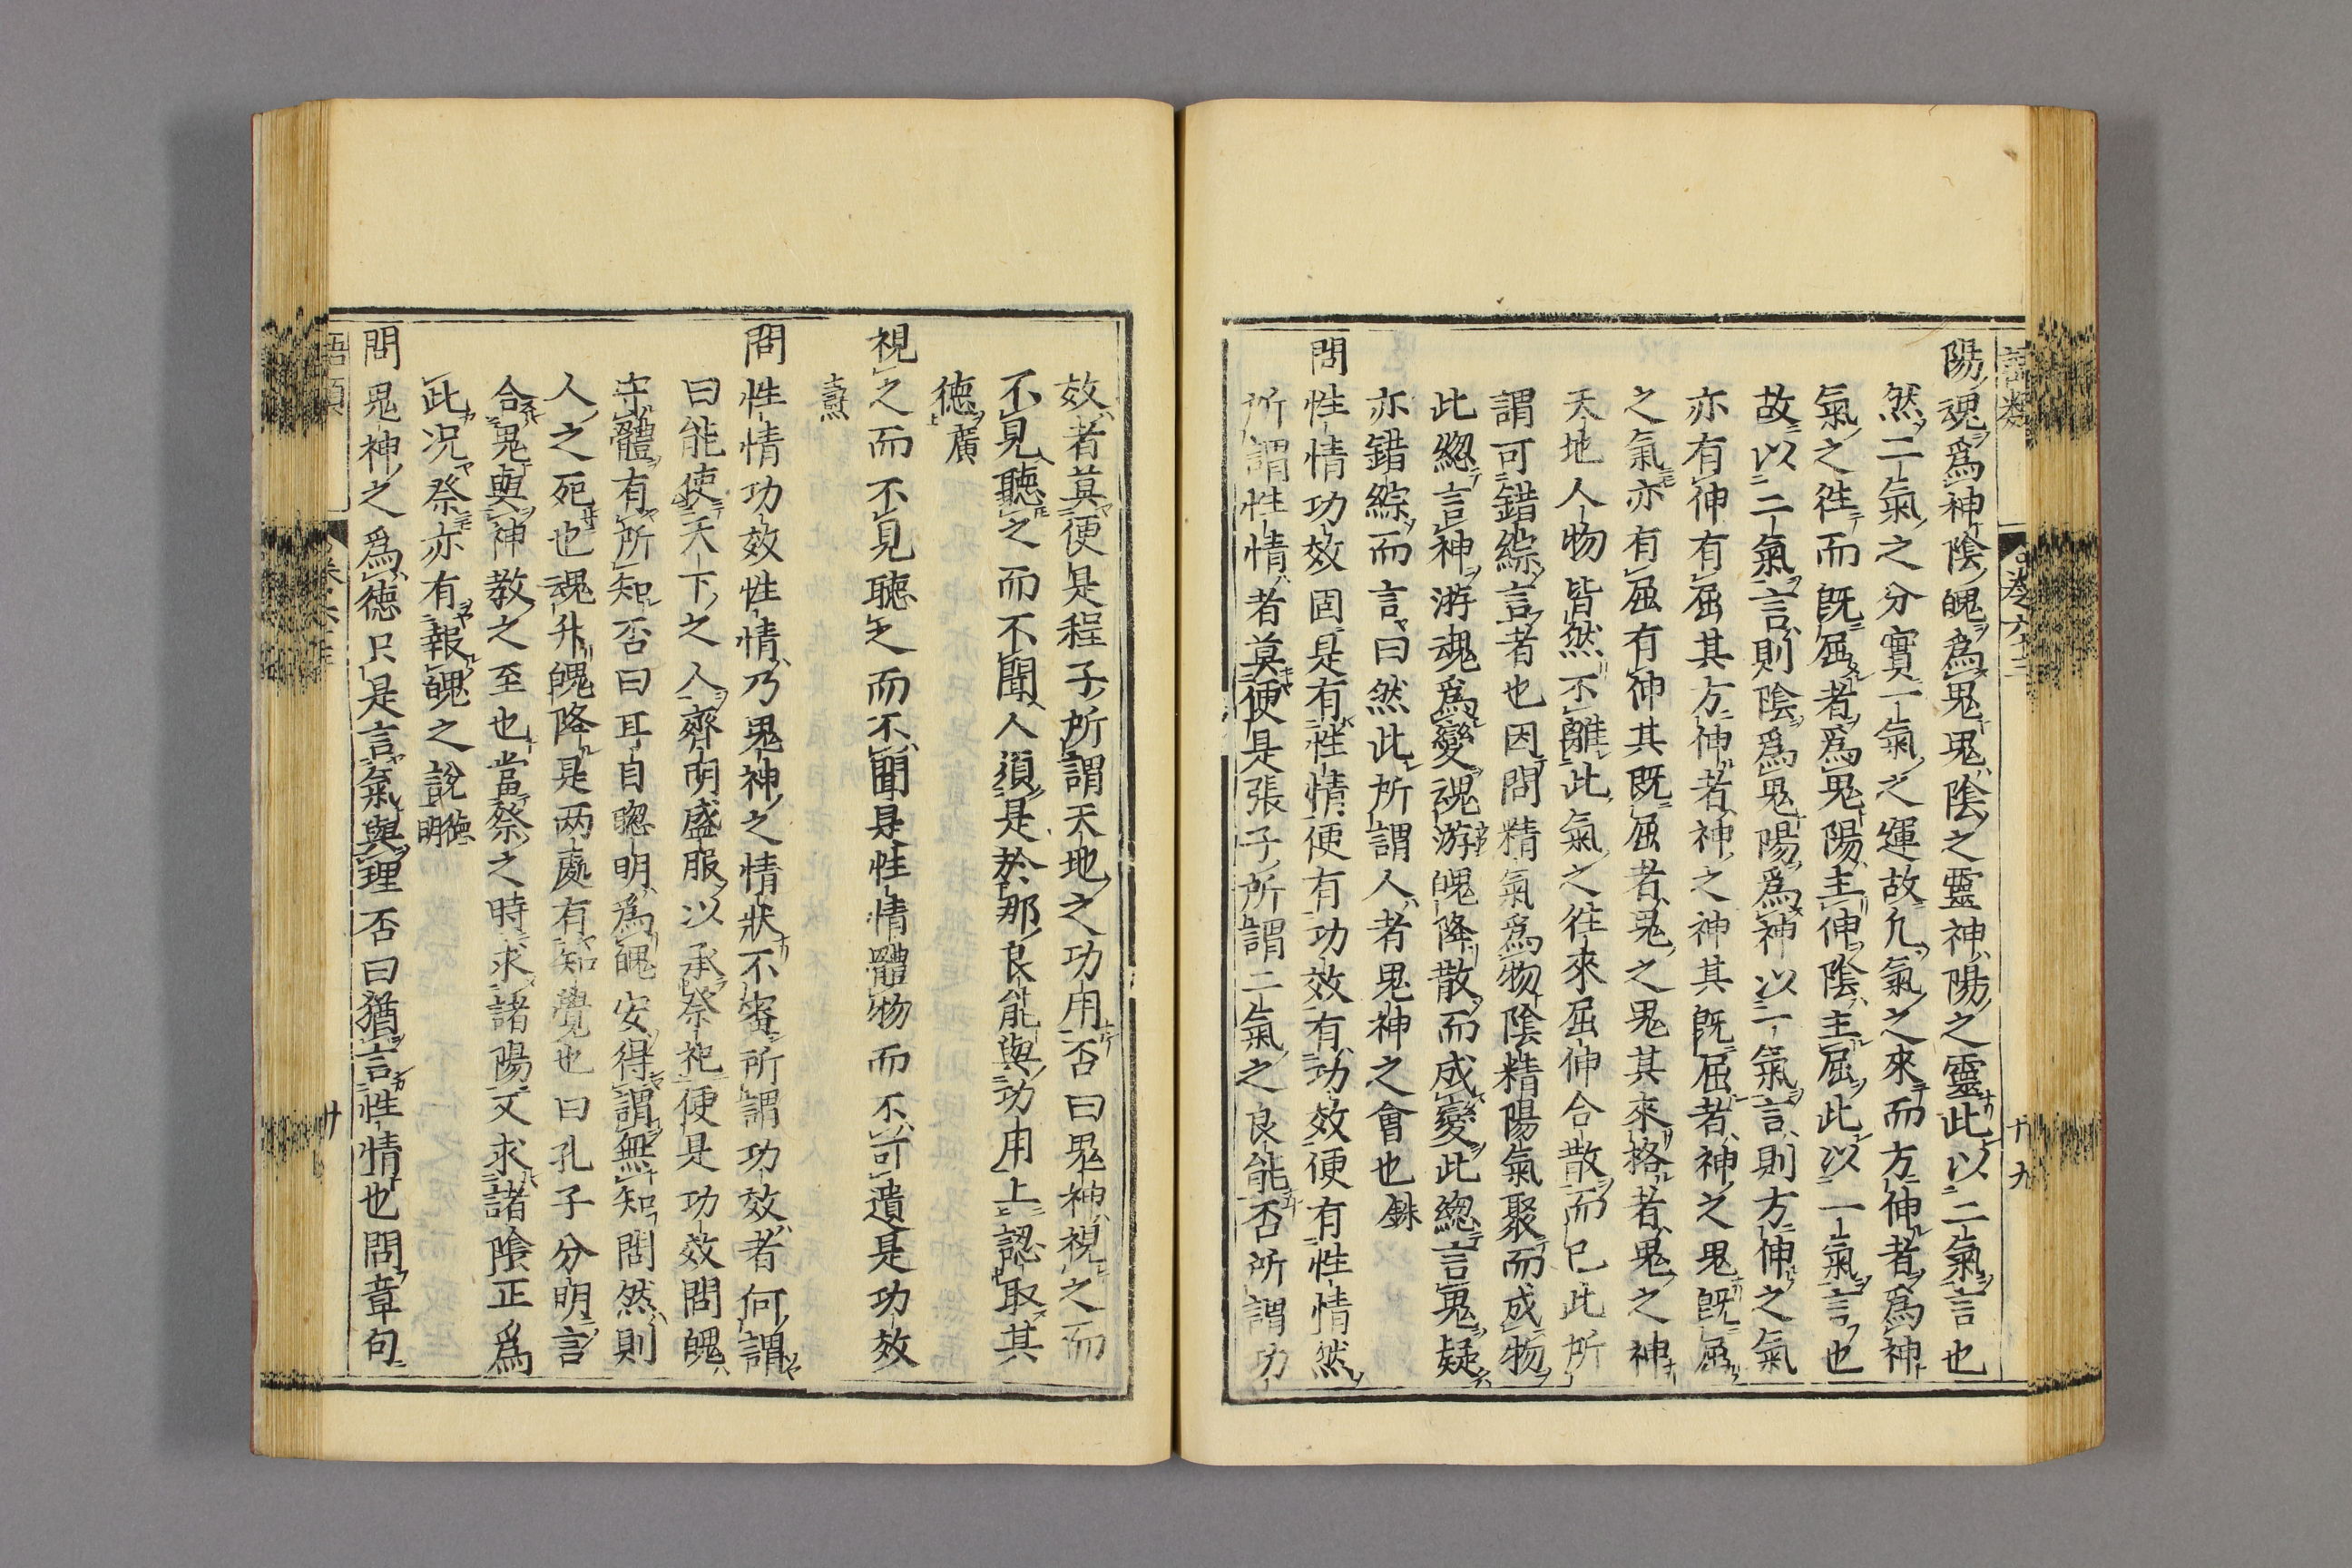 語類
卷六十三
十九
陽魂爲神陰魄爲鬼鬼陰之靈神陽之靈此以二氣言也
然二氣之分實一氣之運故凢氣之來而方伸者爲神
氣之徃而旣屈者爲鬼陽主伸陰主屈此以一氣言也
故以二氣言則陰爲鬼陽爲神以一氣言則方伸之氣
亦有伸有屈其方伸者神之神其旣屈者神之鬼旣屈
之氣亦有屈有伸其旣屈者鬼之鬼其來格者鬼之神
天地人物皆然不離此氣之徃來屈伸合散而已此所
謂可錯綜言者也因問精氣爲物陰精陽氣聚而成物
此緫言神游魂爲變魂游魄降散而成變此緫言鬼疑
亦錯綜而言曰然此所謂人者鬼神之會也銖
問性情功效固是有性情便有功效有功效便有性情然
所謂性情者莫便是張子所謂二氣之良能否所謂功
效者莫便是程子所謂天地之功用否曰鬼神視之而
不見聽之而不聞人須是於那良能與功用上認取其
德廣
視之而不見聽之而不聞是性情體物而不可遺是功效
燾
問性情功效性情乃鬼神之情狀不審所謂功效者何謂
曰能使天下之人齊明盛服以承祭祀便是功效問魄
守體有所知否曰耳目聰明爲魄安得謂無知問然則
人之死也魂升魄降是兩處有知覺也曰孔子分明言
合鬼與神教之至也當祭之時求諸陽又求諸陰正爲
此况祭亦有報魄之說德明
問鬼神之爲德只是言氣與理否曰猶言性情也問章句
語類
廿